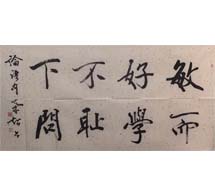 敏而
好學
不耻
下問
論語句